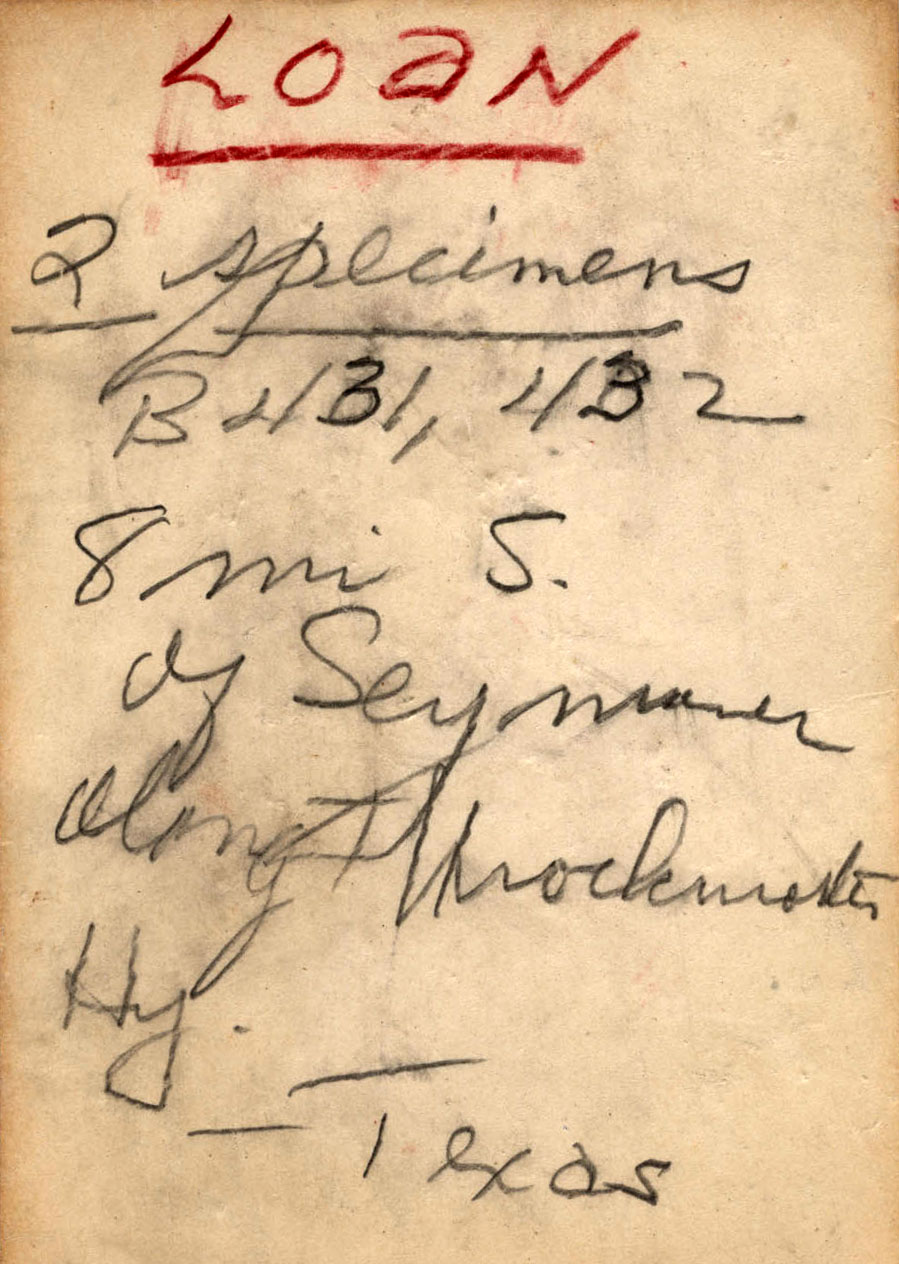 LOAN
2 specimens
B431, 432
8 mi S.
of Seymour
along Throckmorton
Hy.
— Texas